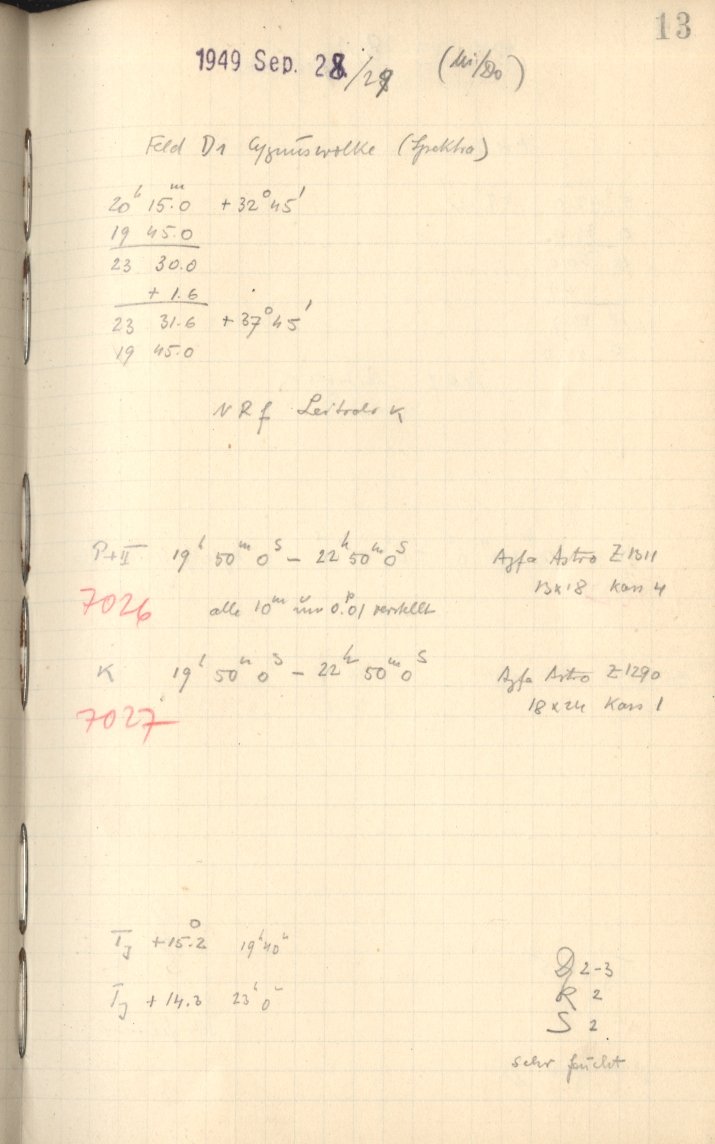 13
1949 Sep. 28/29 (Mi/Do)
Feld D1 Cygnuswolke (Spektra)
20ʰ 15.0ᵐ +32°45'
19 45.0
23 30.0
+ 1.6
23 31.6 +37°45'
19 45.0
N R f Leitrohr K
P+II 19ʰ 50ᵐ 0ˢ – 22ʰ 50ᵐ 0ˢ Agfa Astro Z 1311
13x18 Kass 4
7026 alle 10ᵐ um 0.ᵖ01 verstellt
K 19ʰ 50ᵐ 0ˢ – 22ʰ 50ᵐ 0ˢ Agfa Astro Z 1290
18x24 Kass 1
7027
T_J +15.°2 19ʰ40ᵐ
D 2-3
T_J +14.3 23ʰ0ᵐ
R 2
S 2
sehr feucht